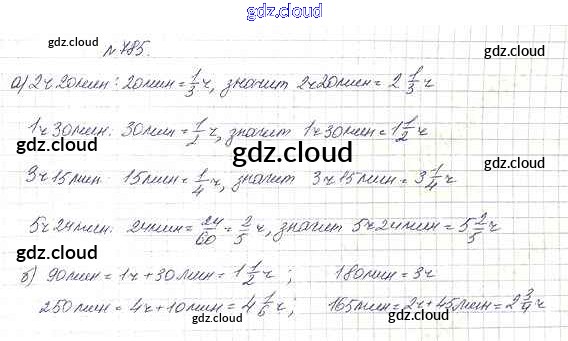 gdz.cloud
gdz.cloud
gdz.cloud
№785.
а) 2ч 20мин: 20мин = 1/3 ч, значит 2ч20мин = 2 1/3 ч
1ч 30мин. 30мин = 1/2 ч, значит 1ч30мин = 1 1/2 ч
gdz.cloud
gdz.cloud
gdz.cloud
3ч 15мин 15мин = 1/4 ч, значит 3ч 15мин = 3 1/4 ч
5ч 24мин: 24мин = 24/60 = 2/5 ч, значит 5ч 24мин = 5 2/5 ч
gdz.cloud
gdz.cloud
б) 90мин = 1ч + 30мин = 1 1/2 ч ; 180мин = 3ч
250мин = 4ч + 10мин = 4 1/6 ч ; 165мин = 2ч + 45мин = 2 3/4 ч
gdz.cloud
gdz.cloud